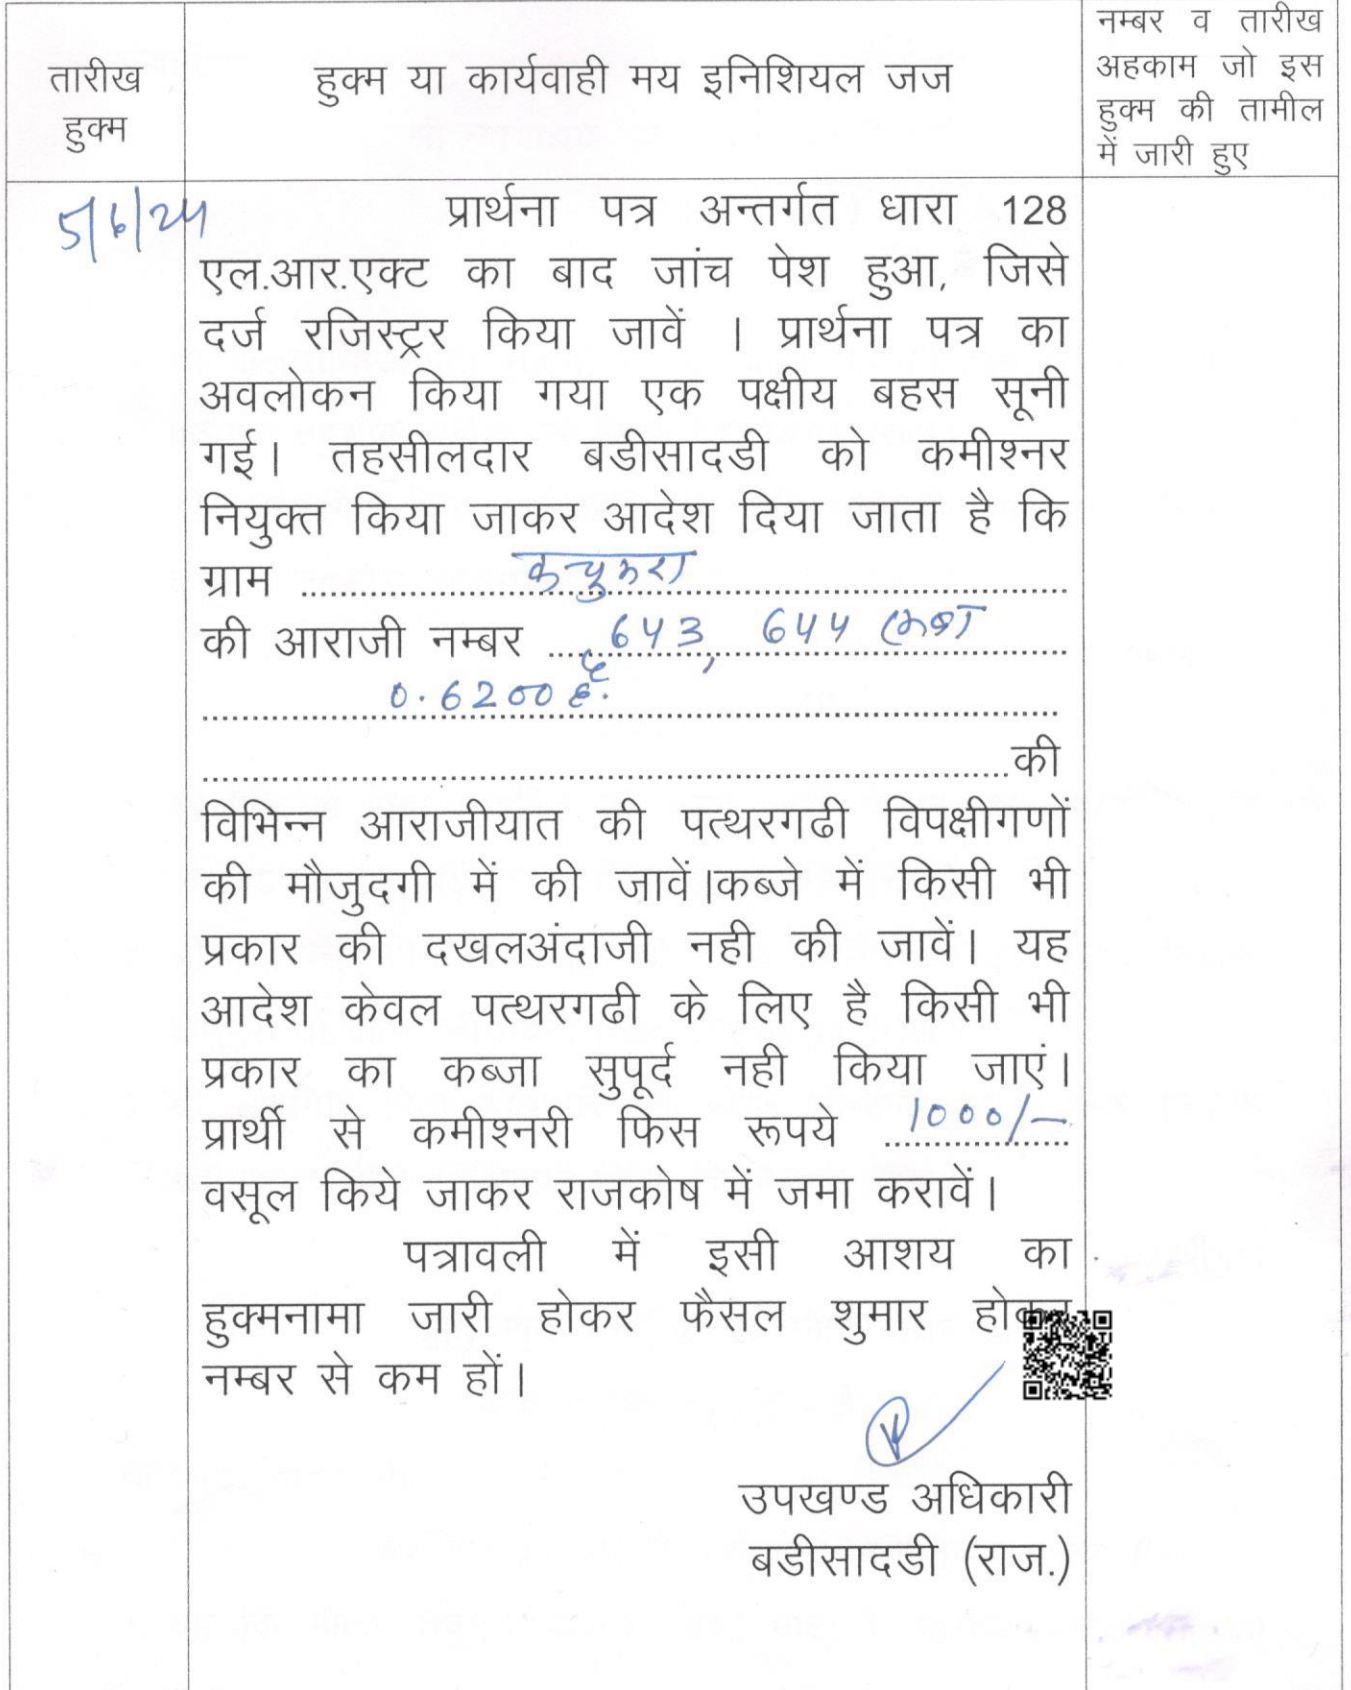 तारीख
हुक्म
हुक्म या कार्यवाही मय इनिशियल जज
नम्बर व तारीख
अहकाम जो इस
हुक्म की तामील
में जारी हुए
5/6/24
प्रार्थना पत्र अन्तर्गत धारा 128
एल.आर.एक्ट का बाद जांच पेश हुआ, जिसे
दर्ज रजिस्ट्रर किया जावें । प्रार्थना पत्र का
अवलोकन किया गया एक पक्षीय बहस सूनी
गई। तहसीलदार बडीसादडी को कमीश्नर
नियुक्त किया जाकर आदेश दिया जाता है कि
ग्राम
की आराजी नम्बर 643, 644
0.6200 है.
की
विभिन्न आराजीयात की पत्थरगढी विपक्षीगणों
की मौजुदगी में की जावें।कब्जे में किसी भी
प्रकार की दखलअंदाजी नही की जावें। यह
आदेश केवल पत्थरगढी के लिए है किसी भी
प्रकार का कब्जा सुपूर्द नही किया जाएं।
प्रार्थी से कमीश्नरी फिस रूपये 1000/-
वसूल किये जाकर राजकोष में जमा करावें।
पत्रावली में इसी आशय का
हुक्मनामा जारी होकर फैसल शुमार होकर
नम्बर से कम हों।
उपखण्ड अधिकारी
बडीसादडी (राज.)